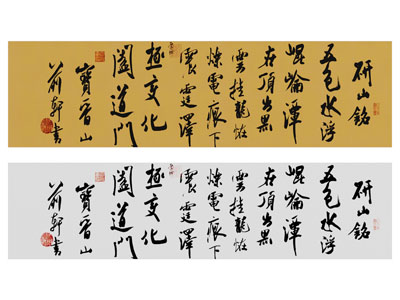 研山銘
五色水浮
崐崘潭
在頂出黑
雲挂龍怪
爍電痕下
震霆澤
極變化
闔道門
寶晉山
前軒書
研山銘
五色水浮
崐崘潭
在頂出黑
雲挂龍怪
爍電痕下
震霆澤
極變化
闔道門
寶晉山
前軒書